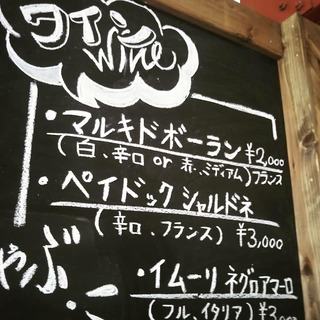 ワイン
wine
・マルキドボーラン ¥2,000
(白、辛口 or 赤、ミディアム) フランス
・ペイドック シャルドネ
(辛口、フランス) ¥3,000
やぶ
・イムーリ ネグロアマーロ
(フル、イタリア)